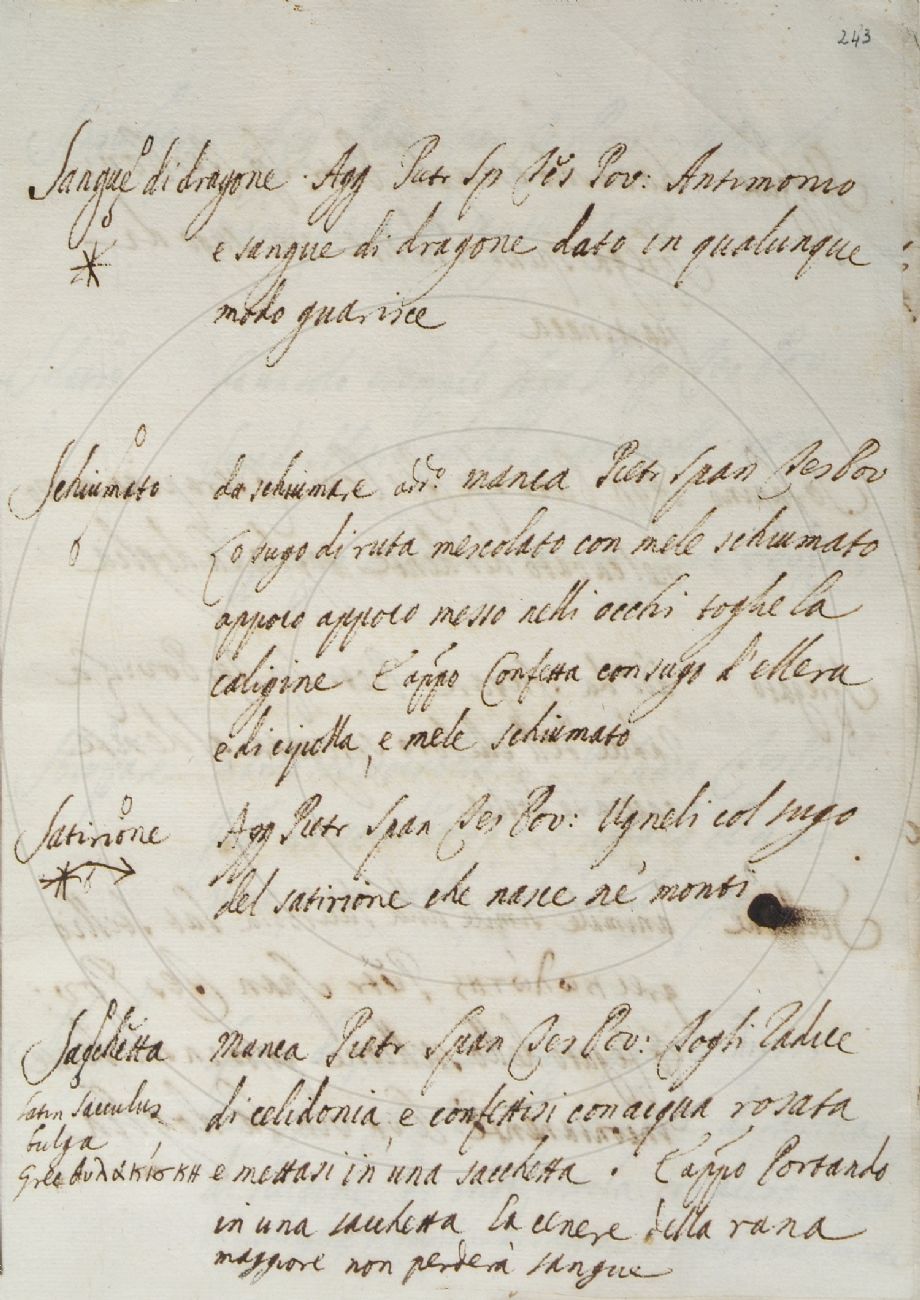 243
Sangue di dragone . Agg Pietr Sp Tes Pov: Antimonio
e sangue di dragone dato in qualunque
modo guarisce
Schiumato da schiumare add.o manca Pietr Span Tes Pov
Lo sugo di ruta mescolato con mele schiumato
appoco appoco messo nelli occhi toglie la
caligine E appo Confetta con sugo d'ellera
e di cipolla, e mele schiumato
Satirione Agg Pietr Span Tes Pov: Ugneli col sugo
del satirione che nasce ne' monti
Sacchetta Manca Pietr Span Tes Pov: Togli Radice
Latin Sacculus di celidonia, e confettisi con acqua rosata
bulga
Grec e mettasi in una sacchetta . E appo Portando
in una sacchetta la cenere della rana
maggiore non perderà sangue